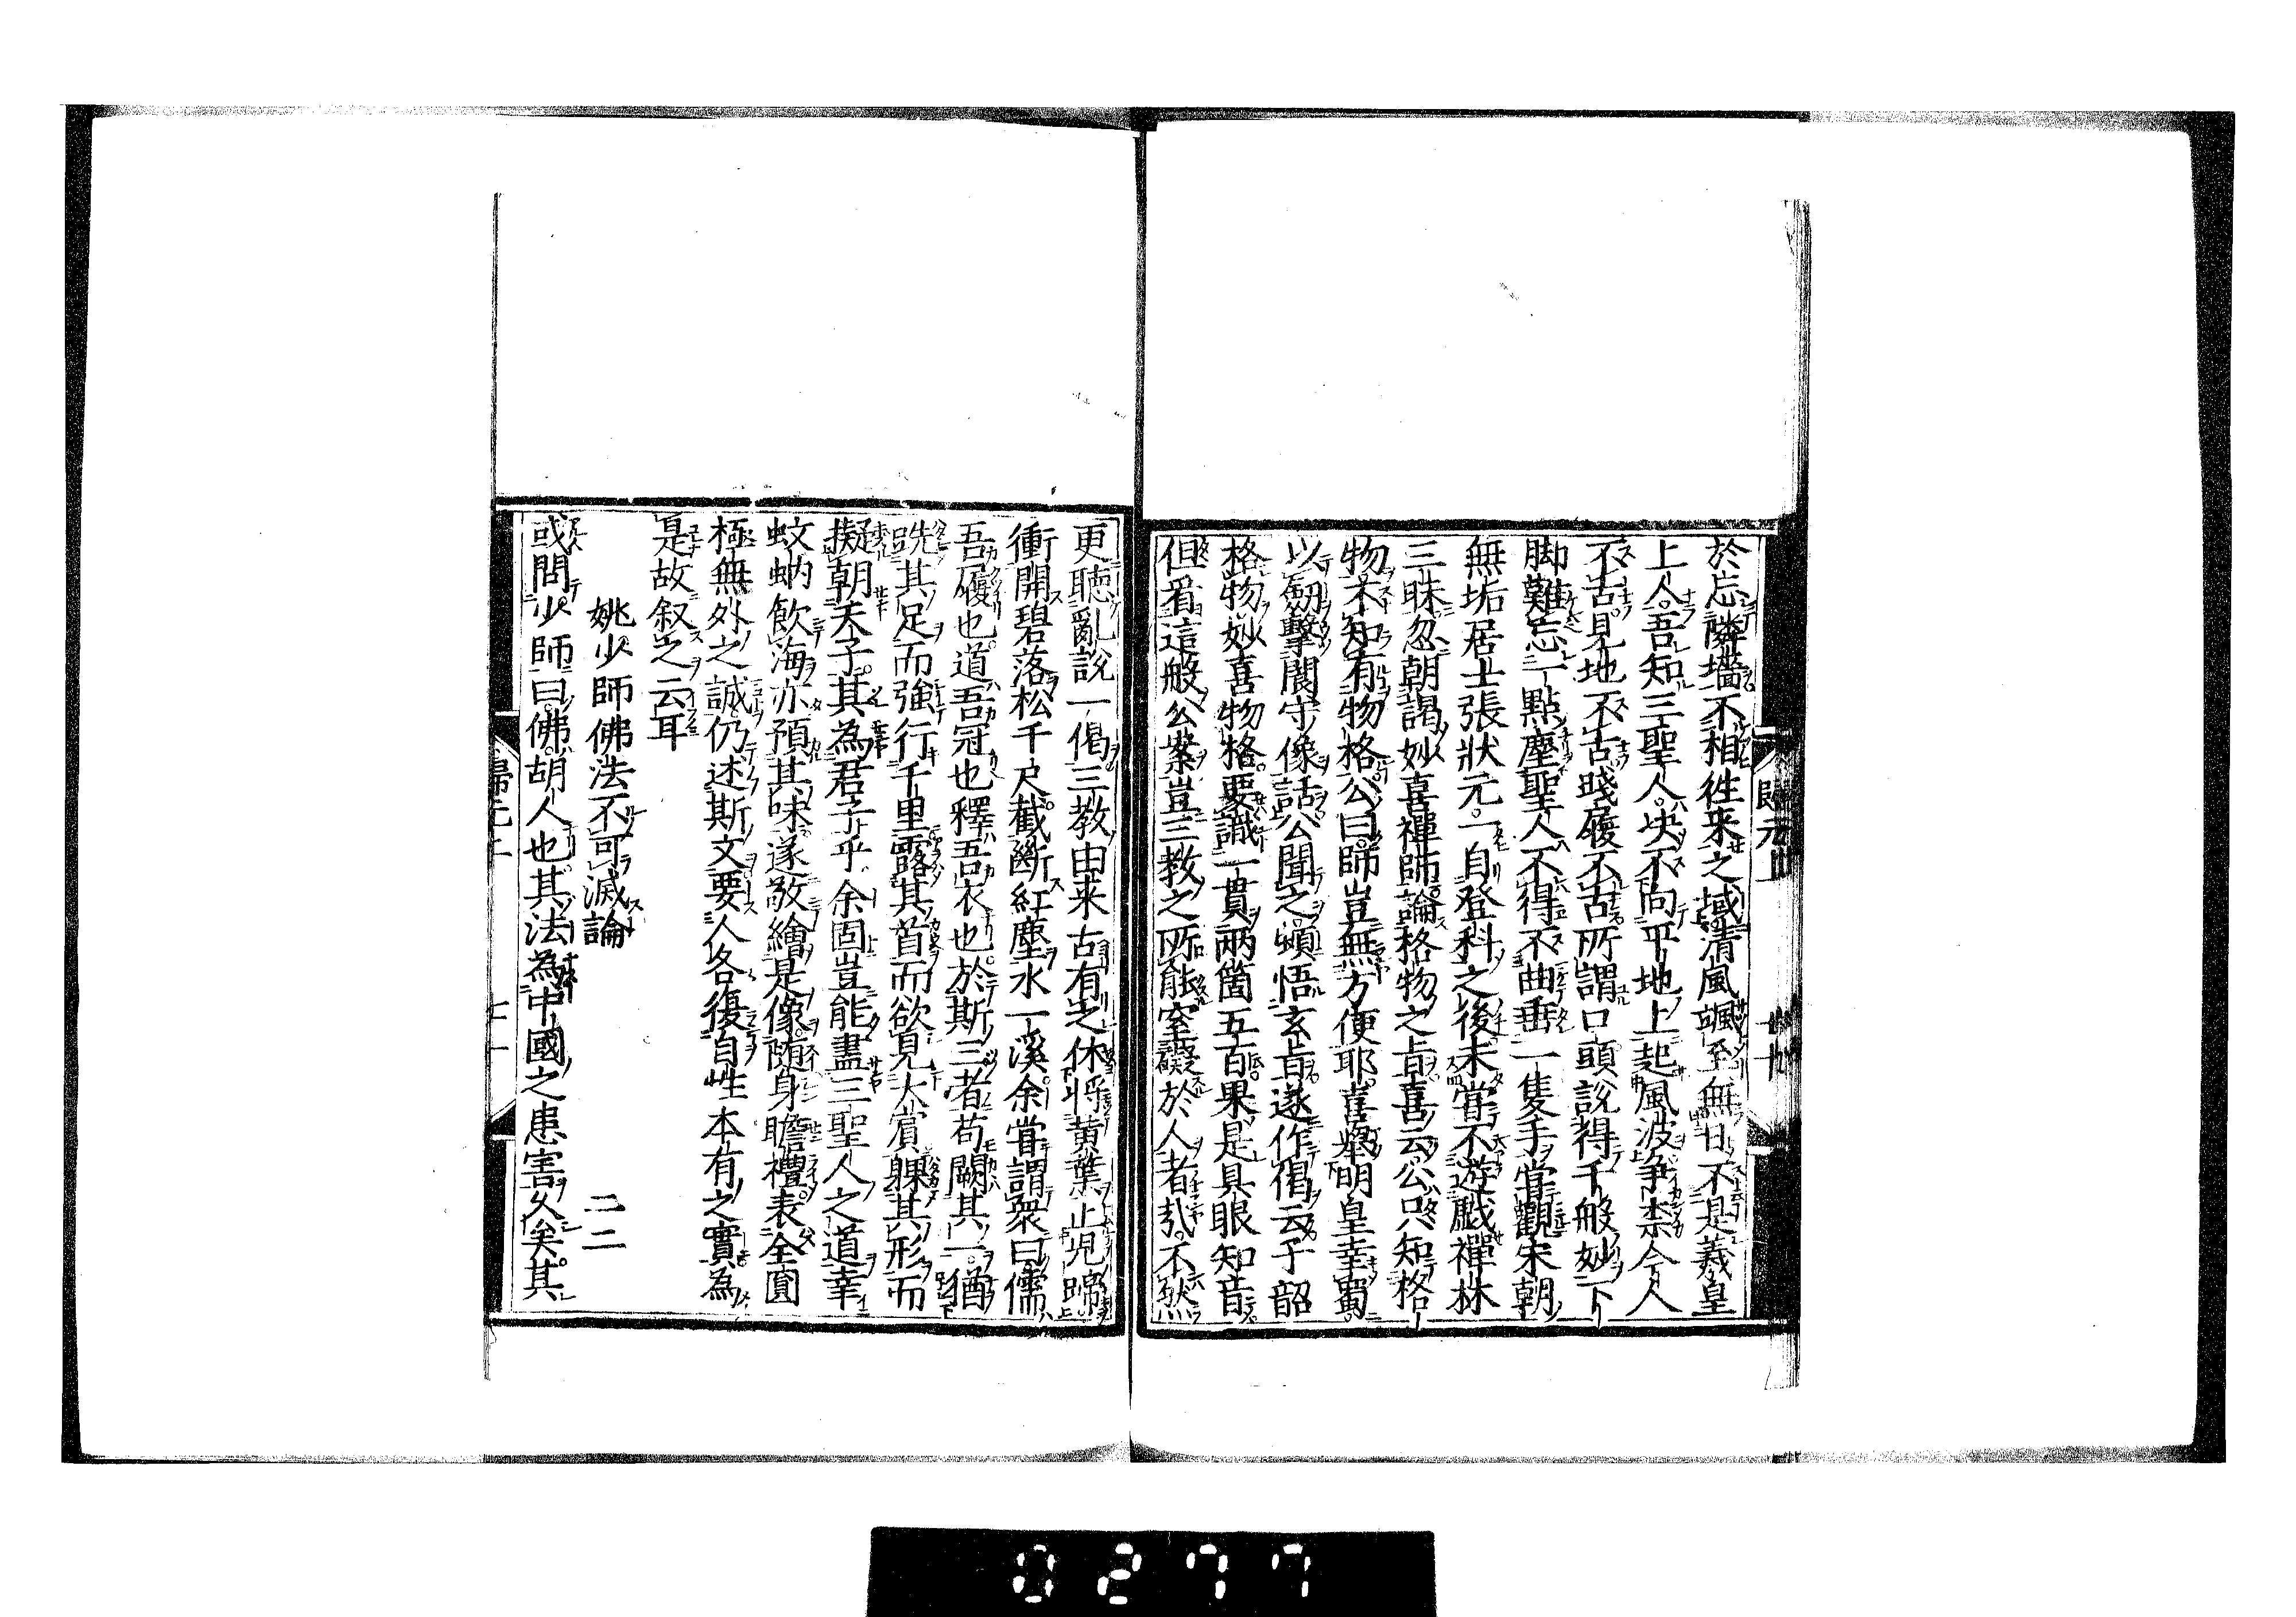 於忘隣墻不相徃来之域清風颯至無日不是羲皇
上人吾知三聖人决不向平地上起風波争柰今人
不古見地不古踐履不古所謂口頭說得千般妙下
脚難忘一點塵聖人不得不曲垂一隻手當觀宋朝
無垢居士張狀元一自登科之後未甞不遊戲禪林
三昧忽朝謁妙喜禪師論格物之旨喜云公只知格
物不知有物格公曰師豈無方便耶喜舉明皇幸蜀
以劔擊閬守像話公聞之頓悟玄旨遂作偈云子韶
格物妙喜物格要識一貫兩箇五百果是具眼知音
但看這般公案豈三教之所能窒礙於人者㢤不然
更聽亂說一偈三教由来古有之休将黄葉止児蹄
衝開碧落松千尺截斷紅塵水一溪余甞謂衆曰儒
吾履也道吾冠也釋吾衣也於斯三者苟闕其一猶
跣其足而強行千里露其首而欲見大賔躶其形而
擬朝天子其為君子乎余固豈能盡三聖人之道幸
蚊蚋飲海亦預其味遂敬繪是像随身瞻禮表全圓
極無外之誠仍述斯文要人各復自性本有之實為
是故叙之云耳
姚少師佛法不可滅論 二二
或問少師曰佛胡人也其法為中國之患害久矣其
0277